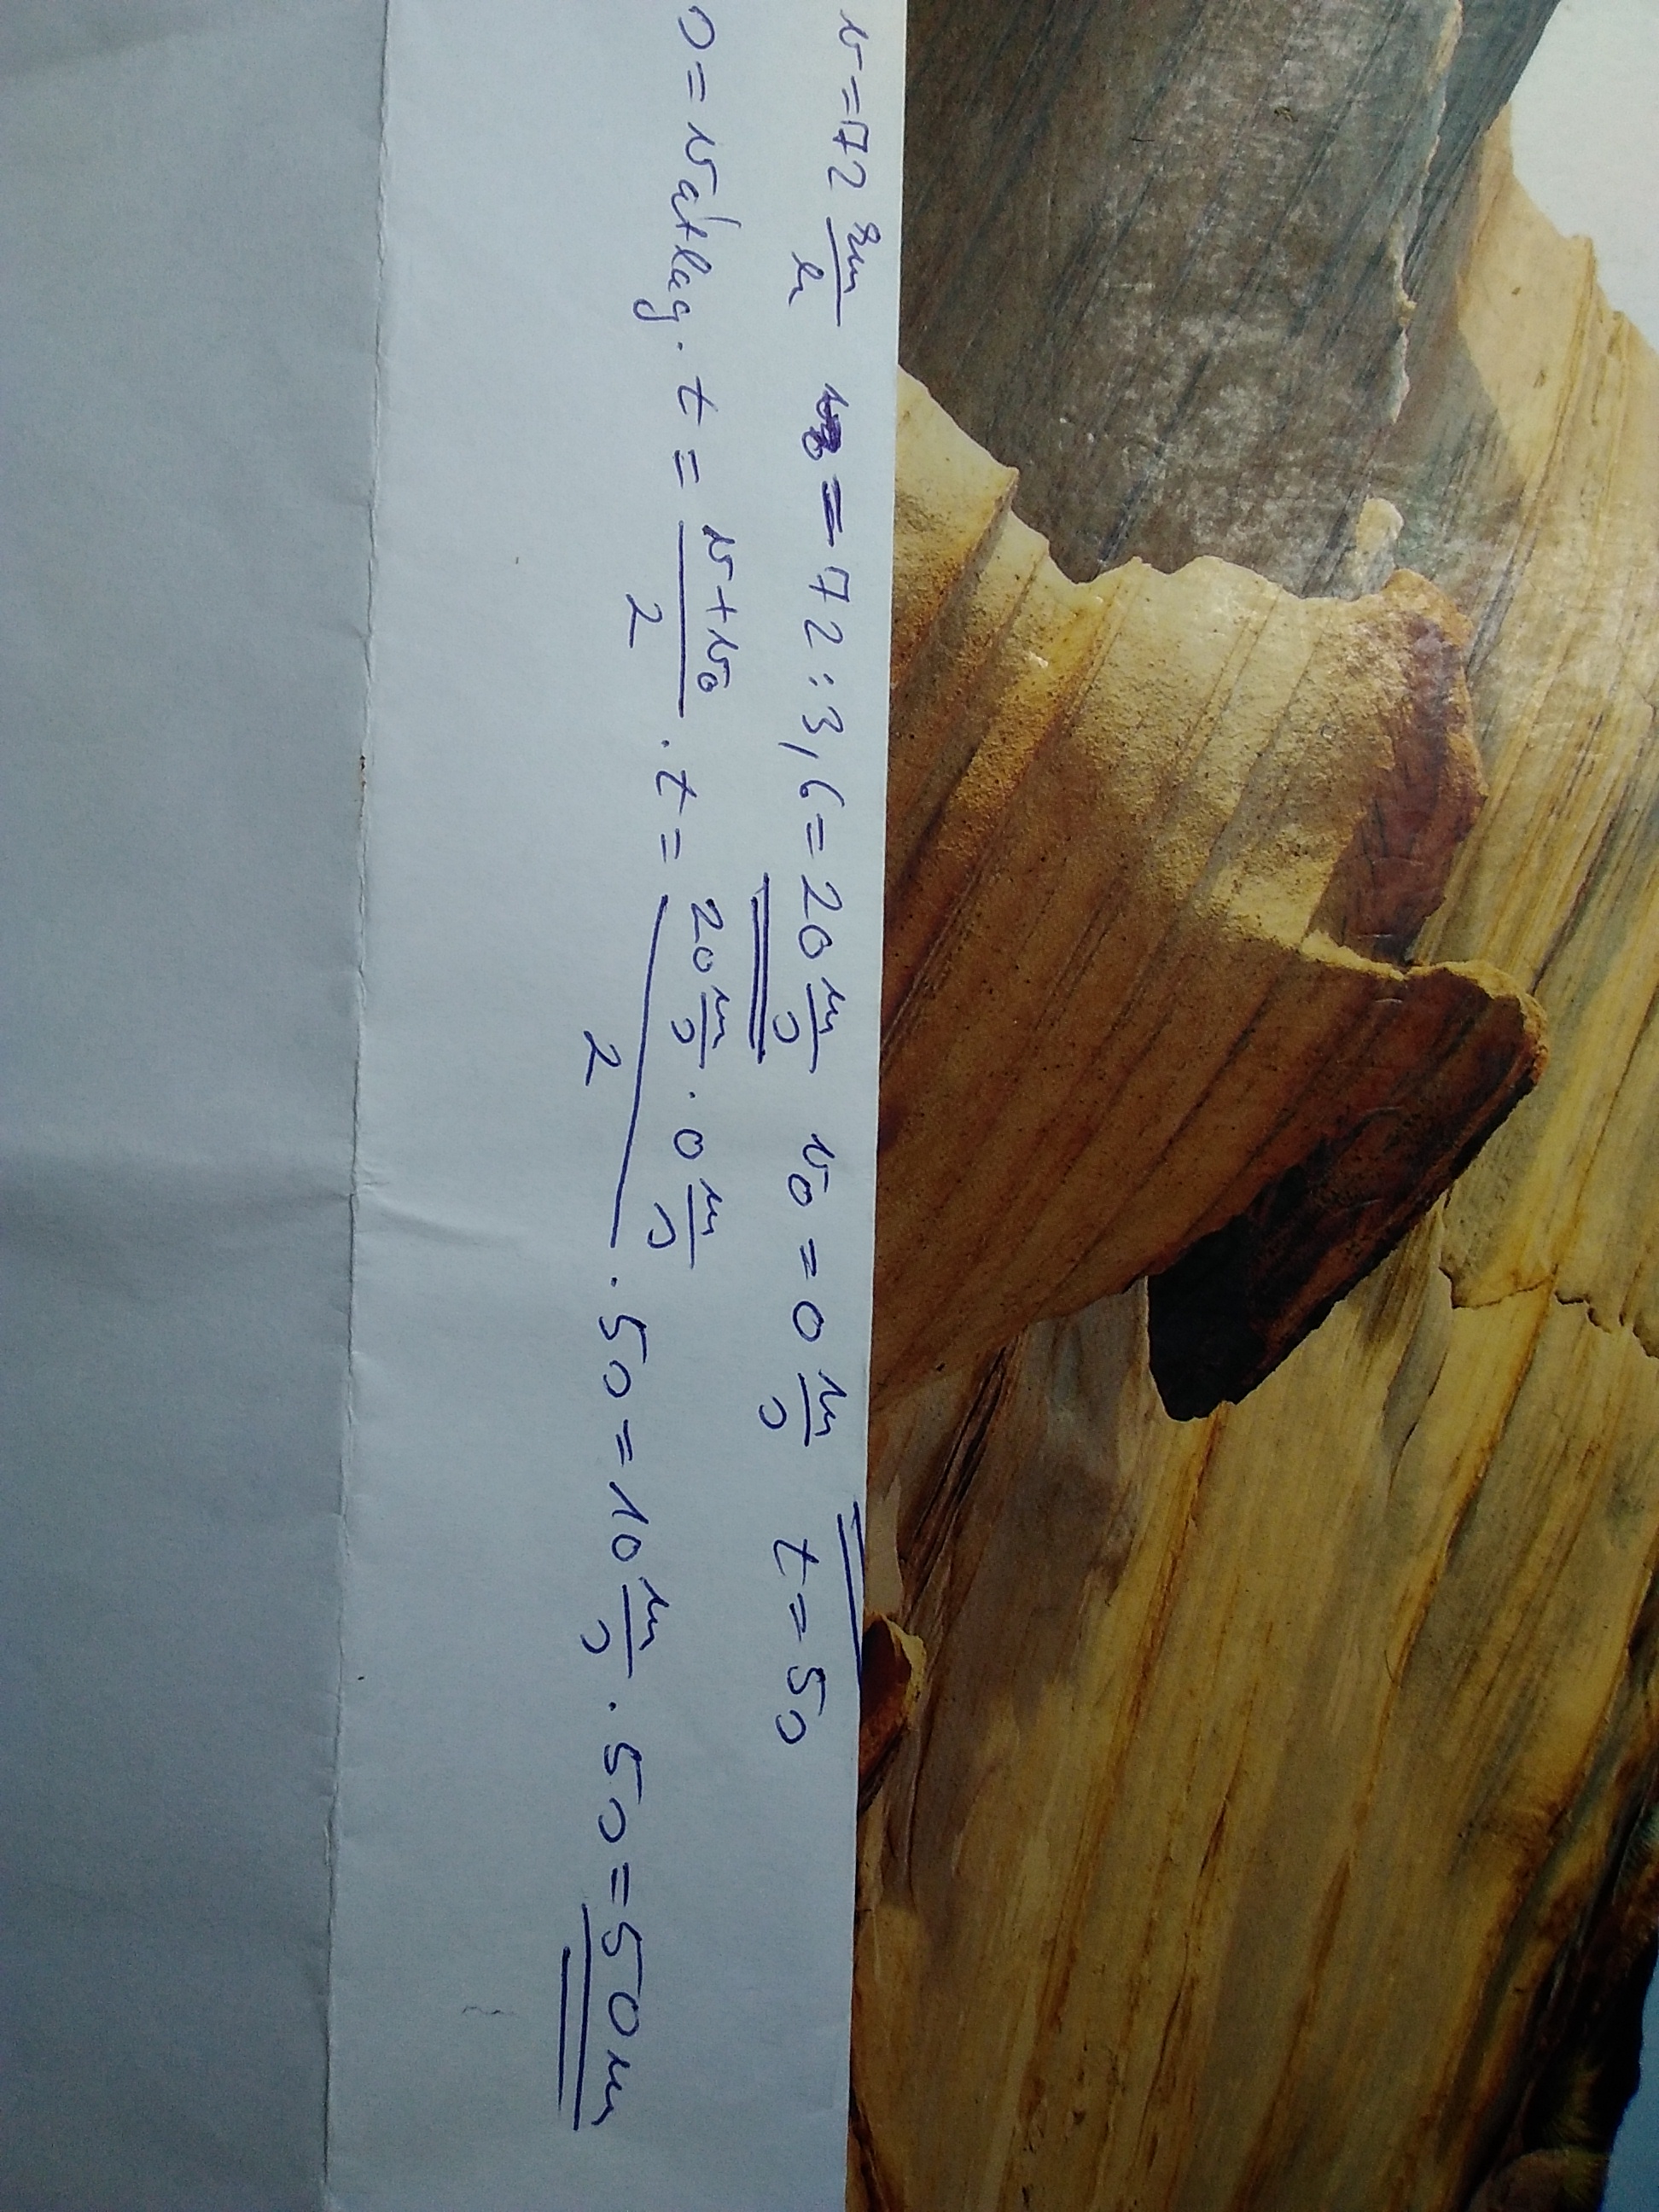 v = 72 km/h v = 72 : 3,6 = 20 m/s v₀ = 0 m/s t = 5s
s = vátlag · t = (v + v₀)/2 · t = (20 m/s · 0 m/s)/2 · 5s = 10 m/s · 5s = 50 m